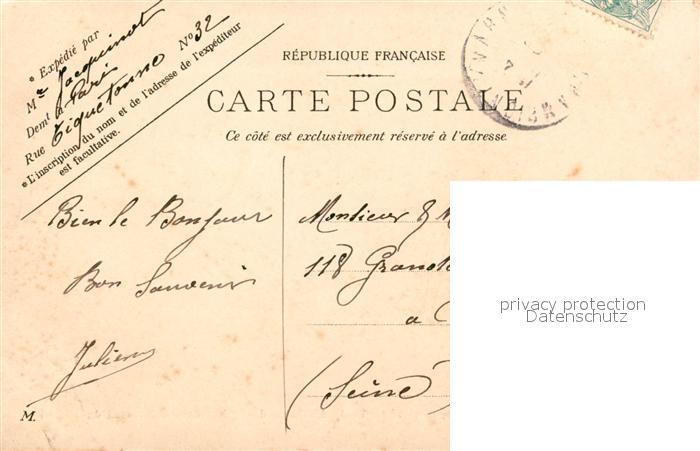 * Expédié par
Mr Jacquinot
Demt à Paris
Rue Tiquetonne No 32
* L'inscription du nom et de l'adresse de l'expéditeur
est facultative.
RÉPUBLIQUE FRANÇAISE
CARTE POSTALE
Ce côté est exclusivement réservé à l'adresse.
Bien le Bonjour
Bon Souvenir
Julien
M.
Monsieur & M
118 Grande
a
(Seine
privacy protection
Datenschutz